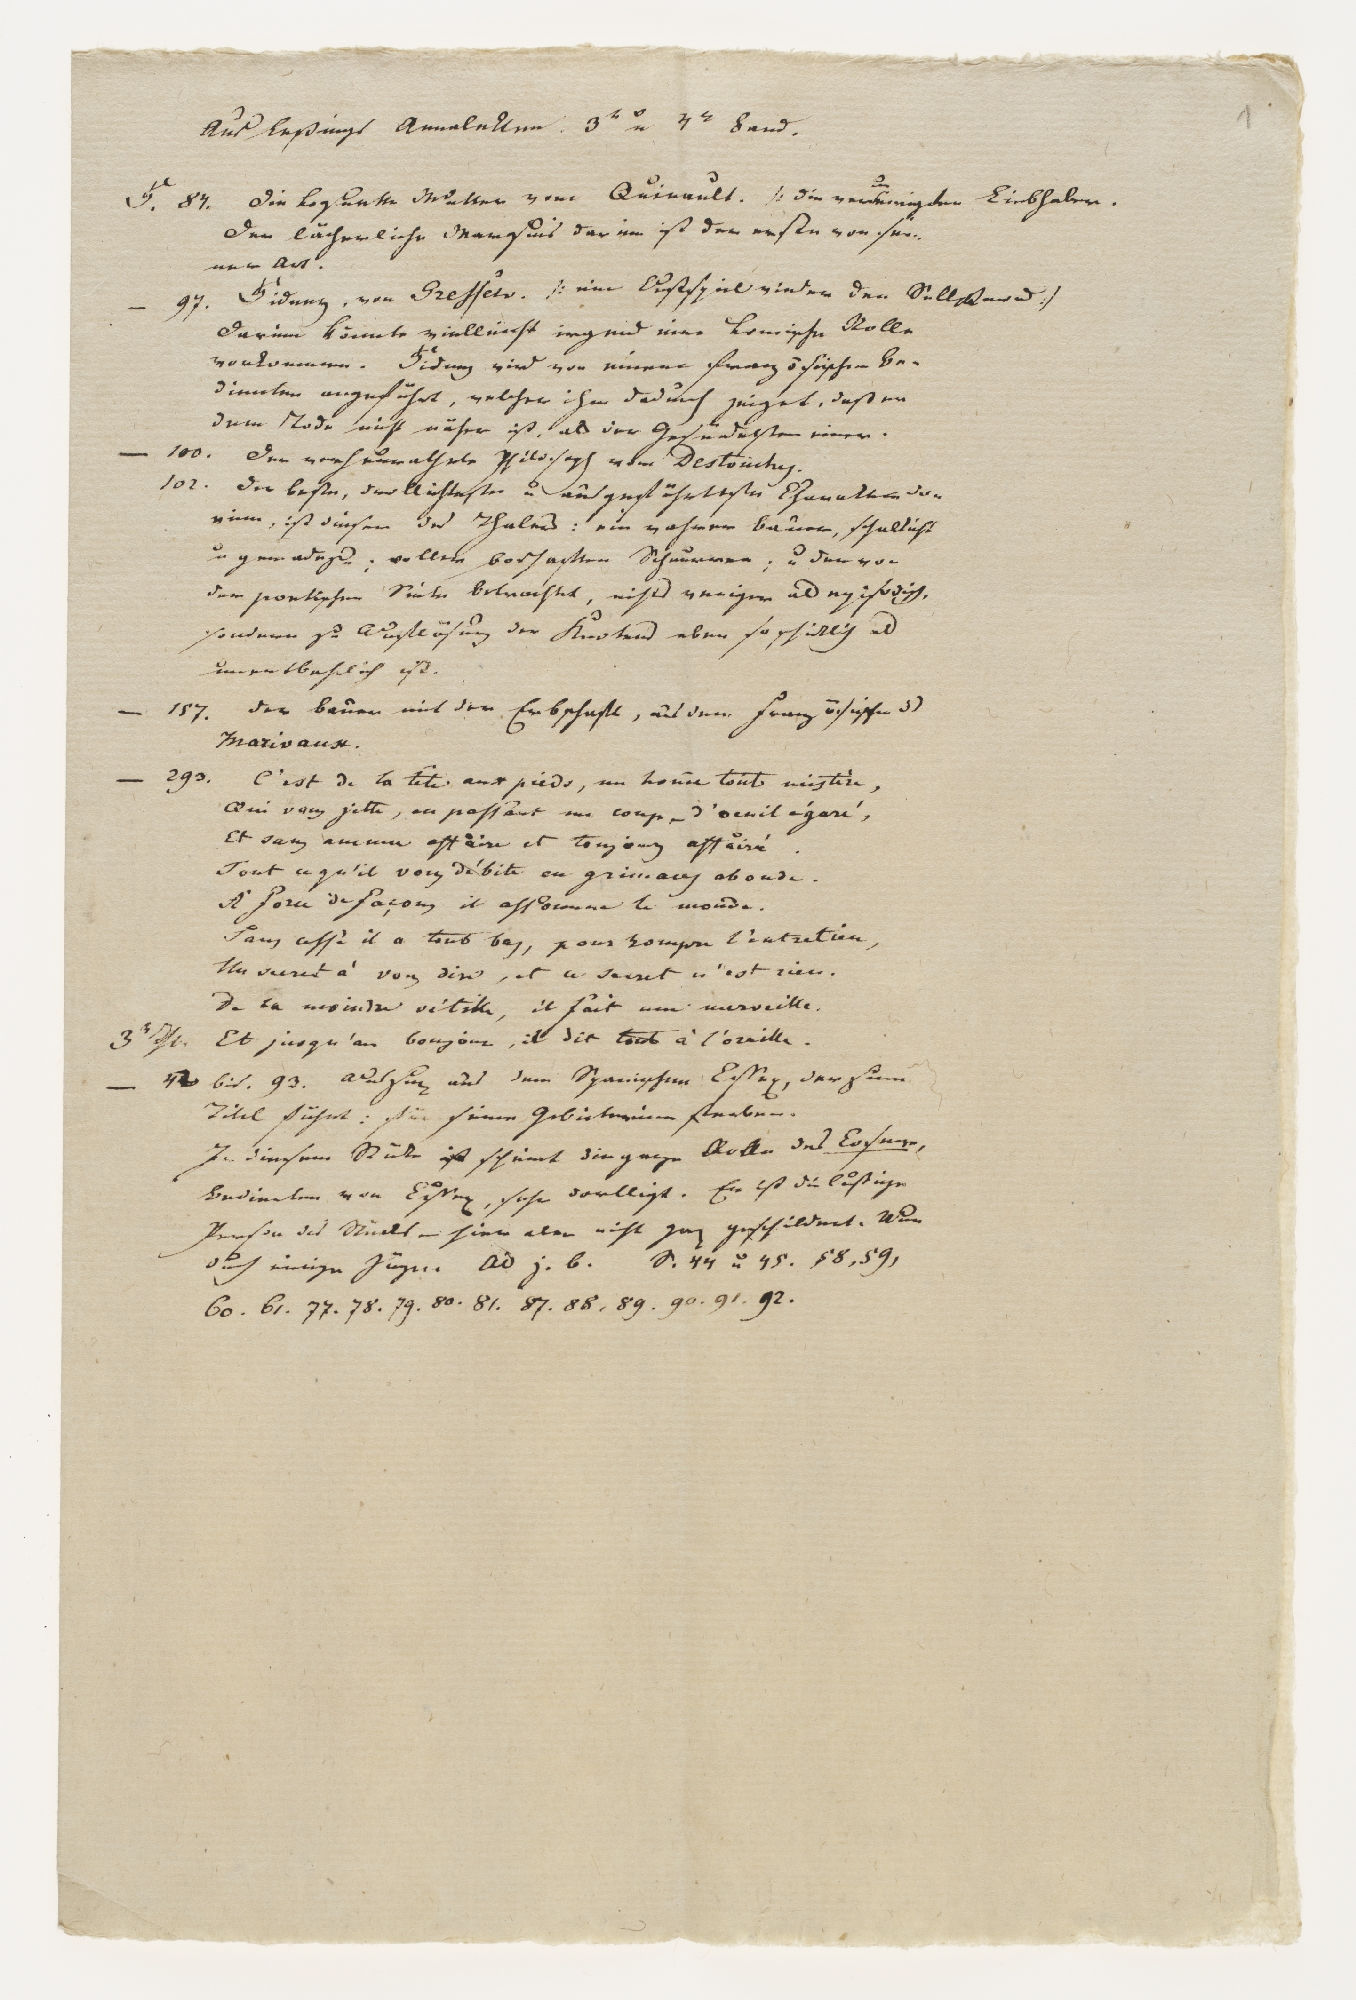 Aus Leßings Annalekten. 3r u 4r Band.
1
S. 84. Die Coquette Mutter vom Quinault. /: die veruneinigten Liebhaber.
Der lächerliche Marquis darinn ist der erste von sei-
ner Art.
— 97. Sidney, von Gresset. /: ein Lustspiel wieder den Selbstmord :/
Darinn könnte vielleicht irgend eine komische Rolle
vorkommen. Sidney wird von einem französischen Be-
dienten angeführt, welcher ihm dadurch zeiget, daß er
dem Tode nicht näher ist, als der Gesündesten einer.
— 100. Der verheurathete Philosoph vom Destouches.
102. Der beste, drollichste u ausgeführteste Charakter da-
rinn, ist dieser des : ein wahrer Bauer, schalkicht
u geradezu ; voller boshaften Schnurren ; u der von
der poetischen Seite betrachtet, nichts weniger als episodisch,
sondern zu Auflösung des Knotens eben so schicklich als
unentbehrlich ist.
— 157. Der Bauer mit der Erbschaft, aus dem Französischen ds
Marivaux.
— 293. C'est de la tête aux pieds, un home tout mistère,
Qui vous jette, en passant un coup d'oeuil égaré,
Et sans aucune affaire est toujours affairé.
Tout ce qu'il vous débite en grimaces abonde.
A force de façons il assomme le monde.
Sans cesse il a tout bas, pour rompre l'entretien,
Un secret à vous dire, et ce secret n'est rien.
De la moindre vétille, il fait une merveille.
3r Et jusqu'au bonjour, il dit tout à l'oreille.
— 42 bis. 93. Auszug aus dem Spanischen Essex, der zum
Titel führt : für seine Gebieterinn sterben.
In diesem Stücke ist scheint die ganze Rolle des Cosme,
Bedienten von Essex, sehr drolligt. Er ist die lustige
Person des Stücks – hier aber nicht ganz geschildert. Nur
durch einige Züge. Als z. b. S. 44 u 45. 58, 59,
60. 61. 77. 78. 79. 80. 81. 87. 88. 89. 90. 91. 92.